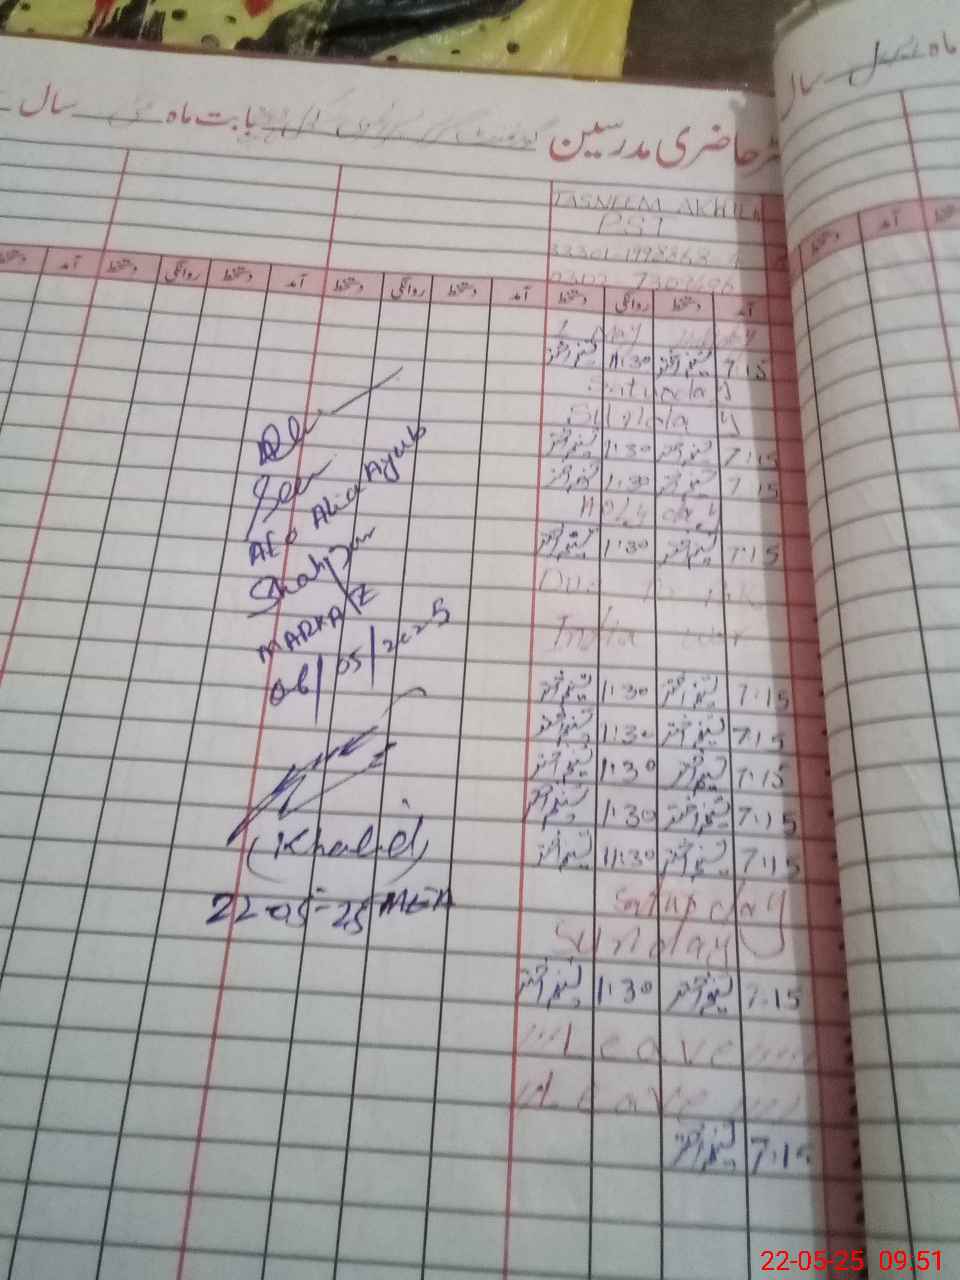 رجسٹر حاضری مدرسین بابت ماہ مئی سال
ماہ اپریل سال
TASNEEM AKHTER
PST
آمد دستخط روانگی دستخط آمد دستخط روانگی دستخط آمد دستخط روانگی دستخط آمد
دستخط آمد
1 May
7:15 تسنیم اختر 11:30 تسنیم اختر
Saturday
Sunday
7:15 تسنیم اختر 1:30 تسنیم اختر
7:15 تسنیم اختر 1:30 تسنیم اختر
Holy day
7:15 تسنیم اختر 1:30 تسنیم اختر
Due to Pak
India war
7:15 تسنیم اختر 1:30 تسنیم اختر
7:15 تسنیم اختر 1:30 تسنیم اختر
7:15 تسنیم اختر 1:30 تسنیم اختر
7:15 تسنیم اختر 1:30 تسنیم اختر
7:15 تسنیم اختر 11:30 تسنیم اختر
Saturday
Sunday
7:15 تسنیم اختر 1:30 تسنیم اختر
Leave
Leave
7:15 تسنیم اختر
AEO Ayub
MARKAZ
06/05/2025
(Khalid)
22-05-25 MEA
22-05-25 09:51